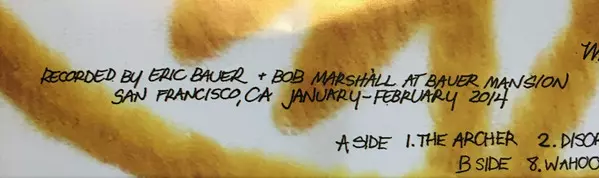 RECORDED BY ERIC BAUER + BOB MARSHALL AT BAUER MANSION
SAN FRANCISCO, CA JANUARY-FEBRUARY 2014
A SIDE 1. THE ARCHER 2. DISOR
B SIDE 8. WAHOO